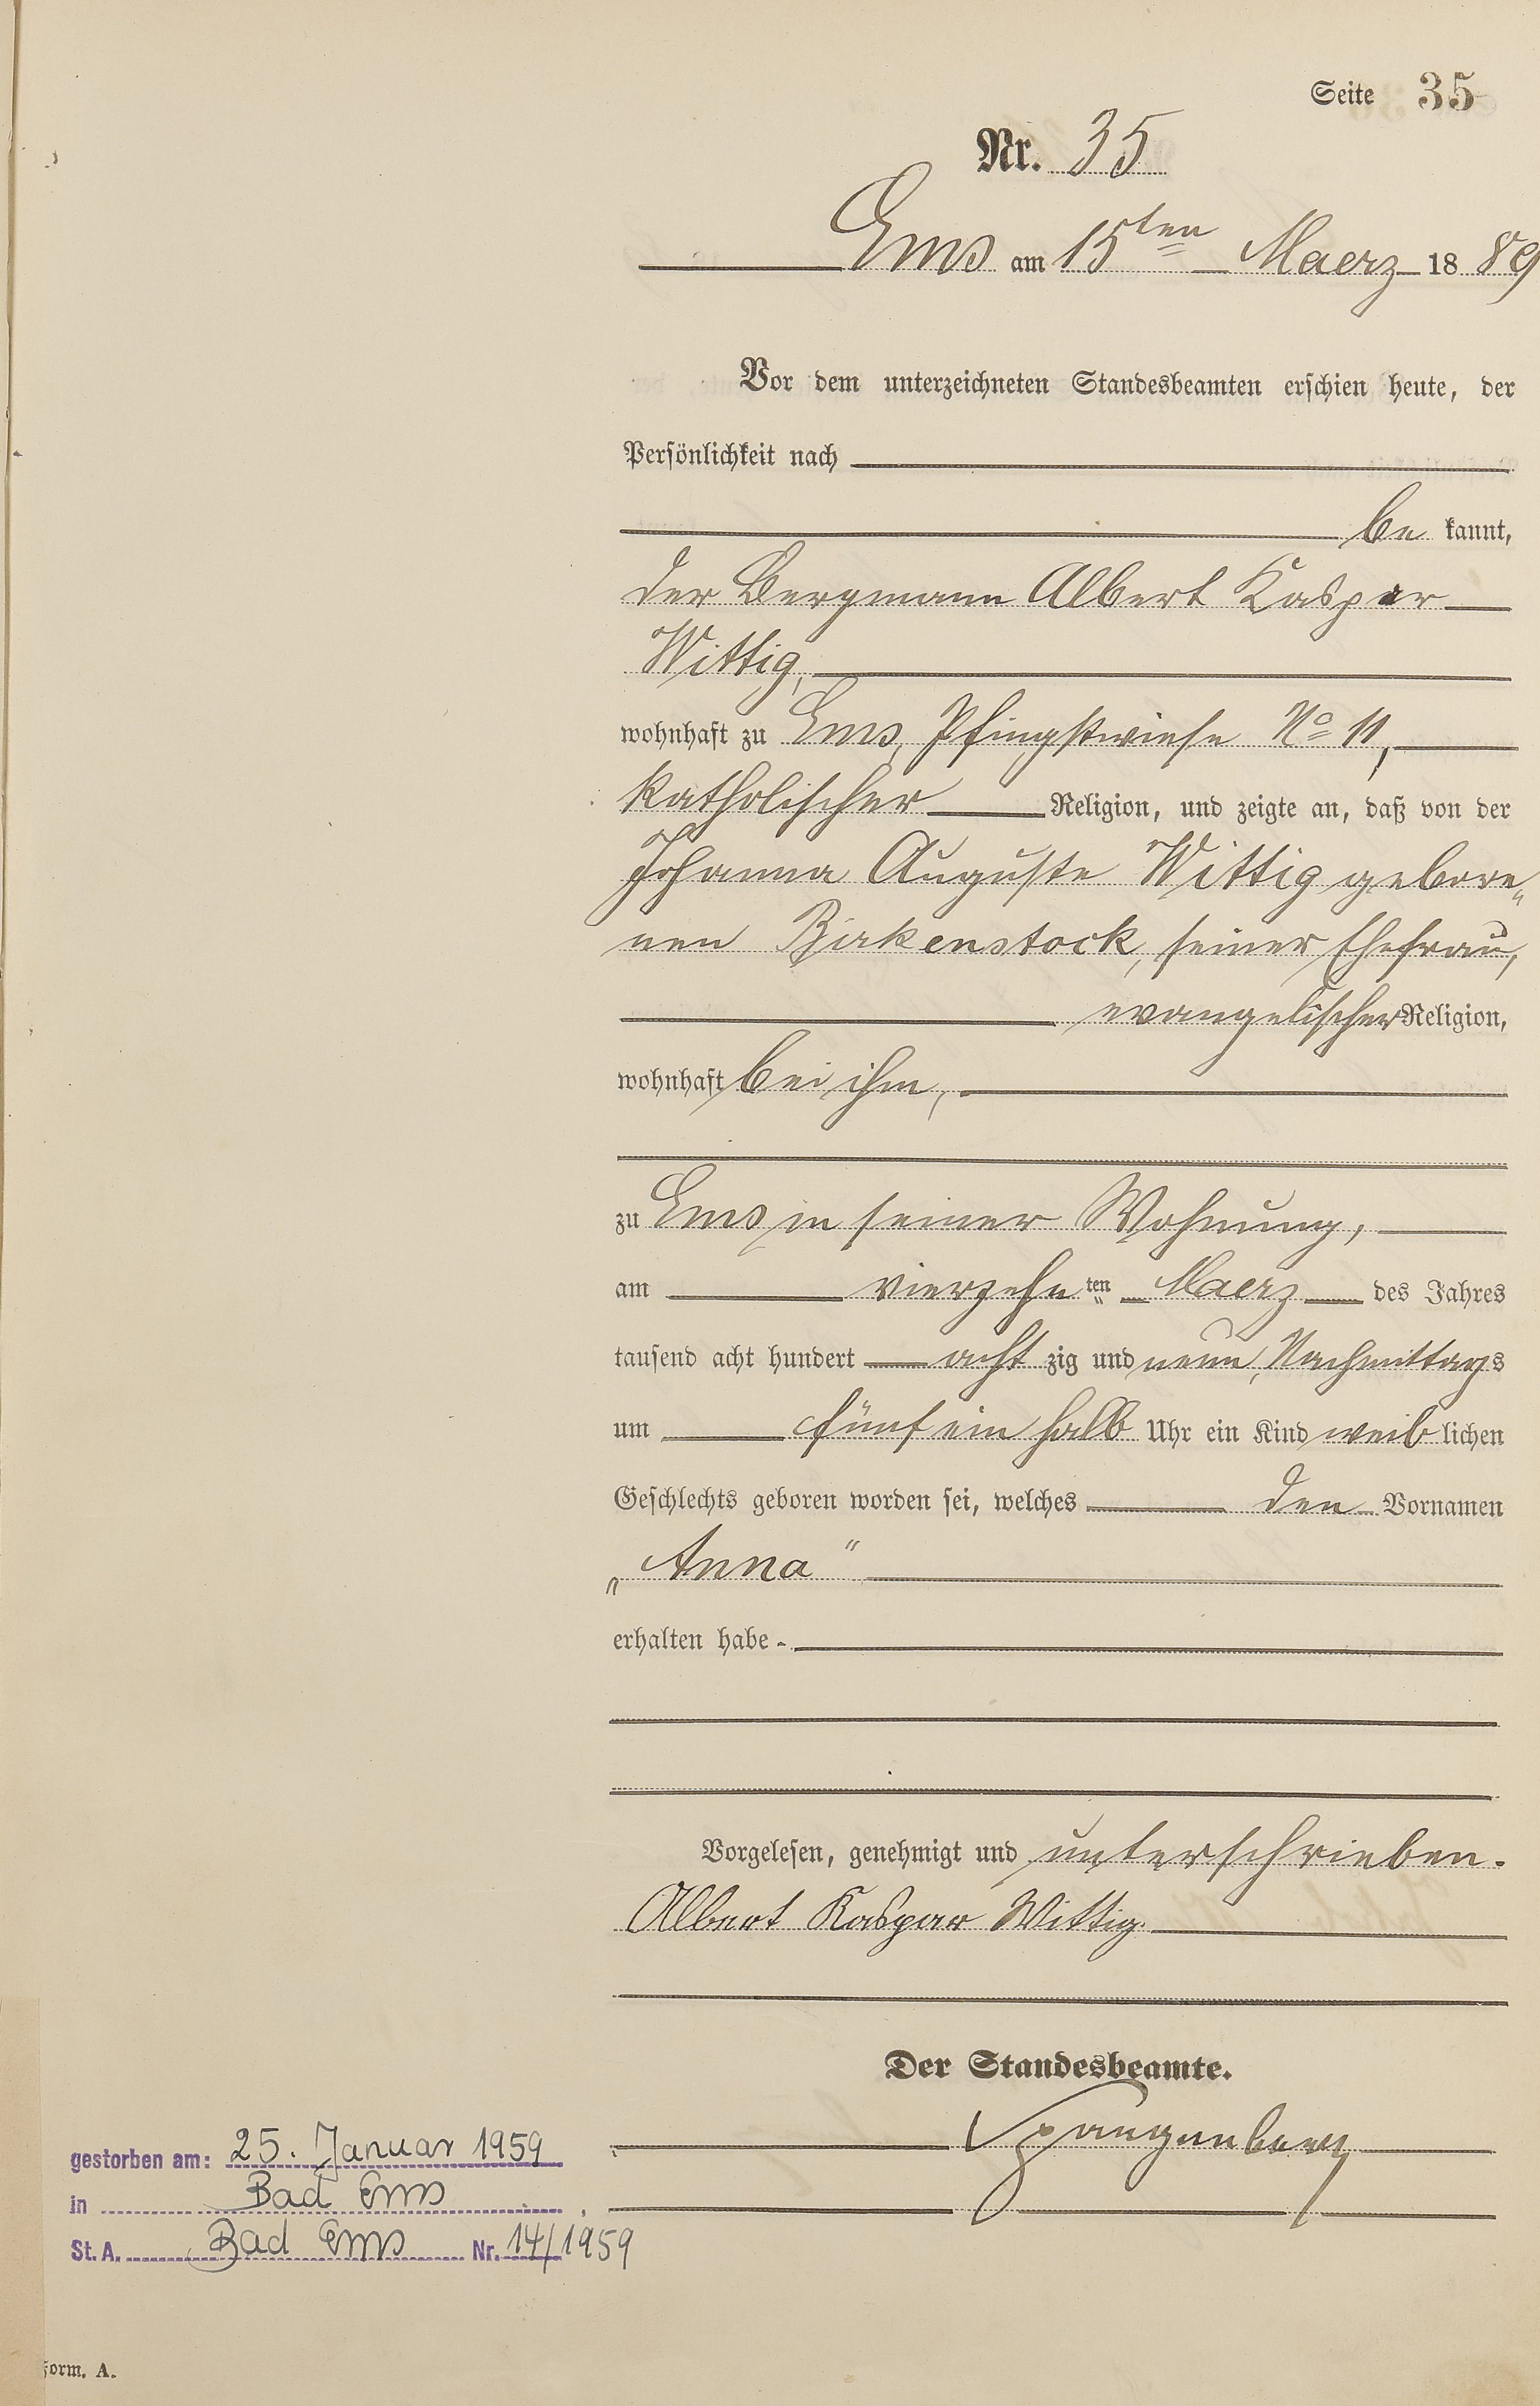 Seite 35
Nr. 35
Ems am 15ten Maerz 1889
Vor dem unterzeichneten Standesbeamten erschien heute, der
Persönlichkeit nach
be kannt,
der Bergmann Albert Kaspar
Wittig,
wohnhaft zu Ems, Pfingstwiese No 11,
katholischer Religion, und zeigte an, daß von der
Johanna Auguste Wittig gebore„
nen Birkenstock, seiner Ehefrau,
evangelischer Religion,
wohnhaft bei ihm,
zu Ems in seiner Wohnung,
am vierzehnten Maerz des Jahres
tausend acht hundert acht zig und neun, Nachmittags
um fünf ein halb Uhr ein Kind weib lichen
Geschlechts geboren worden sei, welches den Vornamen
„Anna“
erhalten habe.
Vorgelesen, genehmigt und unterschrieben.
Albert Kaspar Wittig.
Der Standesbeamte.
Spangenberg
gestorben am: 25. Januar 1959
in Bad Ems,
St. A. Bad Ems Nr. 14/1959
Form. A.